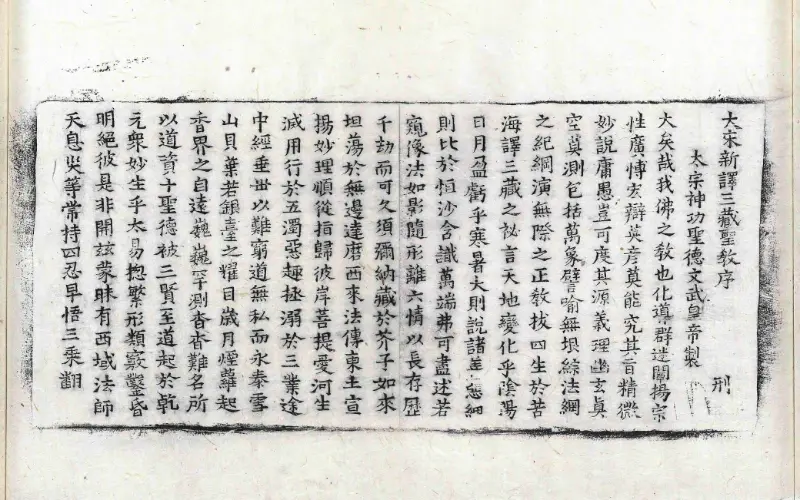 大宋新譯三藏聖教序
刑
太宗神功聖德文武皇帝製
大矣哉我佛之教也化導群迷闡揚宗
性廣博宏辯英彥莫能究其旨精微
妙說庸愚豈可度其源義理幽玄真
空莫測包括萬象譬喻無垠綜法網
之紀綱演無際之正教拔四生於苦
海譯三藏之祕言天地變化乎陰陽
日月盈虧乎寒暑大則說諸善惡細
則比於恒沙含識萬端弗可盡述若
窺像法如影隨形離六情以長存歷
千劫而可久須彌納藏於芥子如來
坦蕩於無邊達磨西來法傳東土宣
揚妙理順從指歸彼岸菩提愛河生
滅用行於五濁惡趣拯溺於三業途
中經垂世以難窮道無私而永泰雪
山貝葉若銀臺之耀目歲月煙蘿起
香界之自遠巍巍罕測杳杳難名所
以道資十聖德被三賢至道起於乾
元衆妙生乎太易摠繁形類竅鑿昏
明絕彼是非開玆蒙昧有西域法師
天息災等常持四忍早悟三乘翻